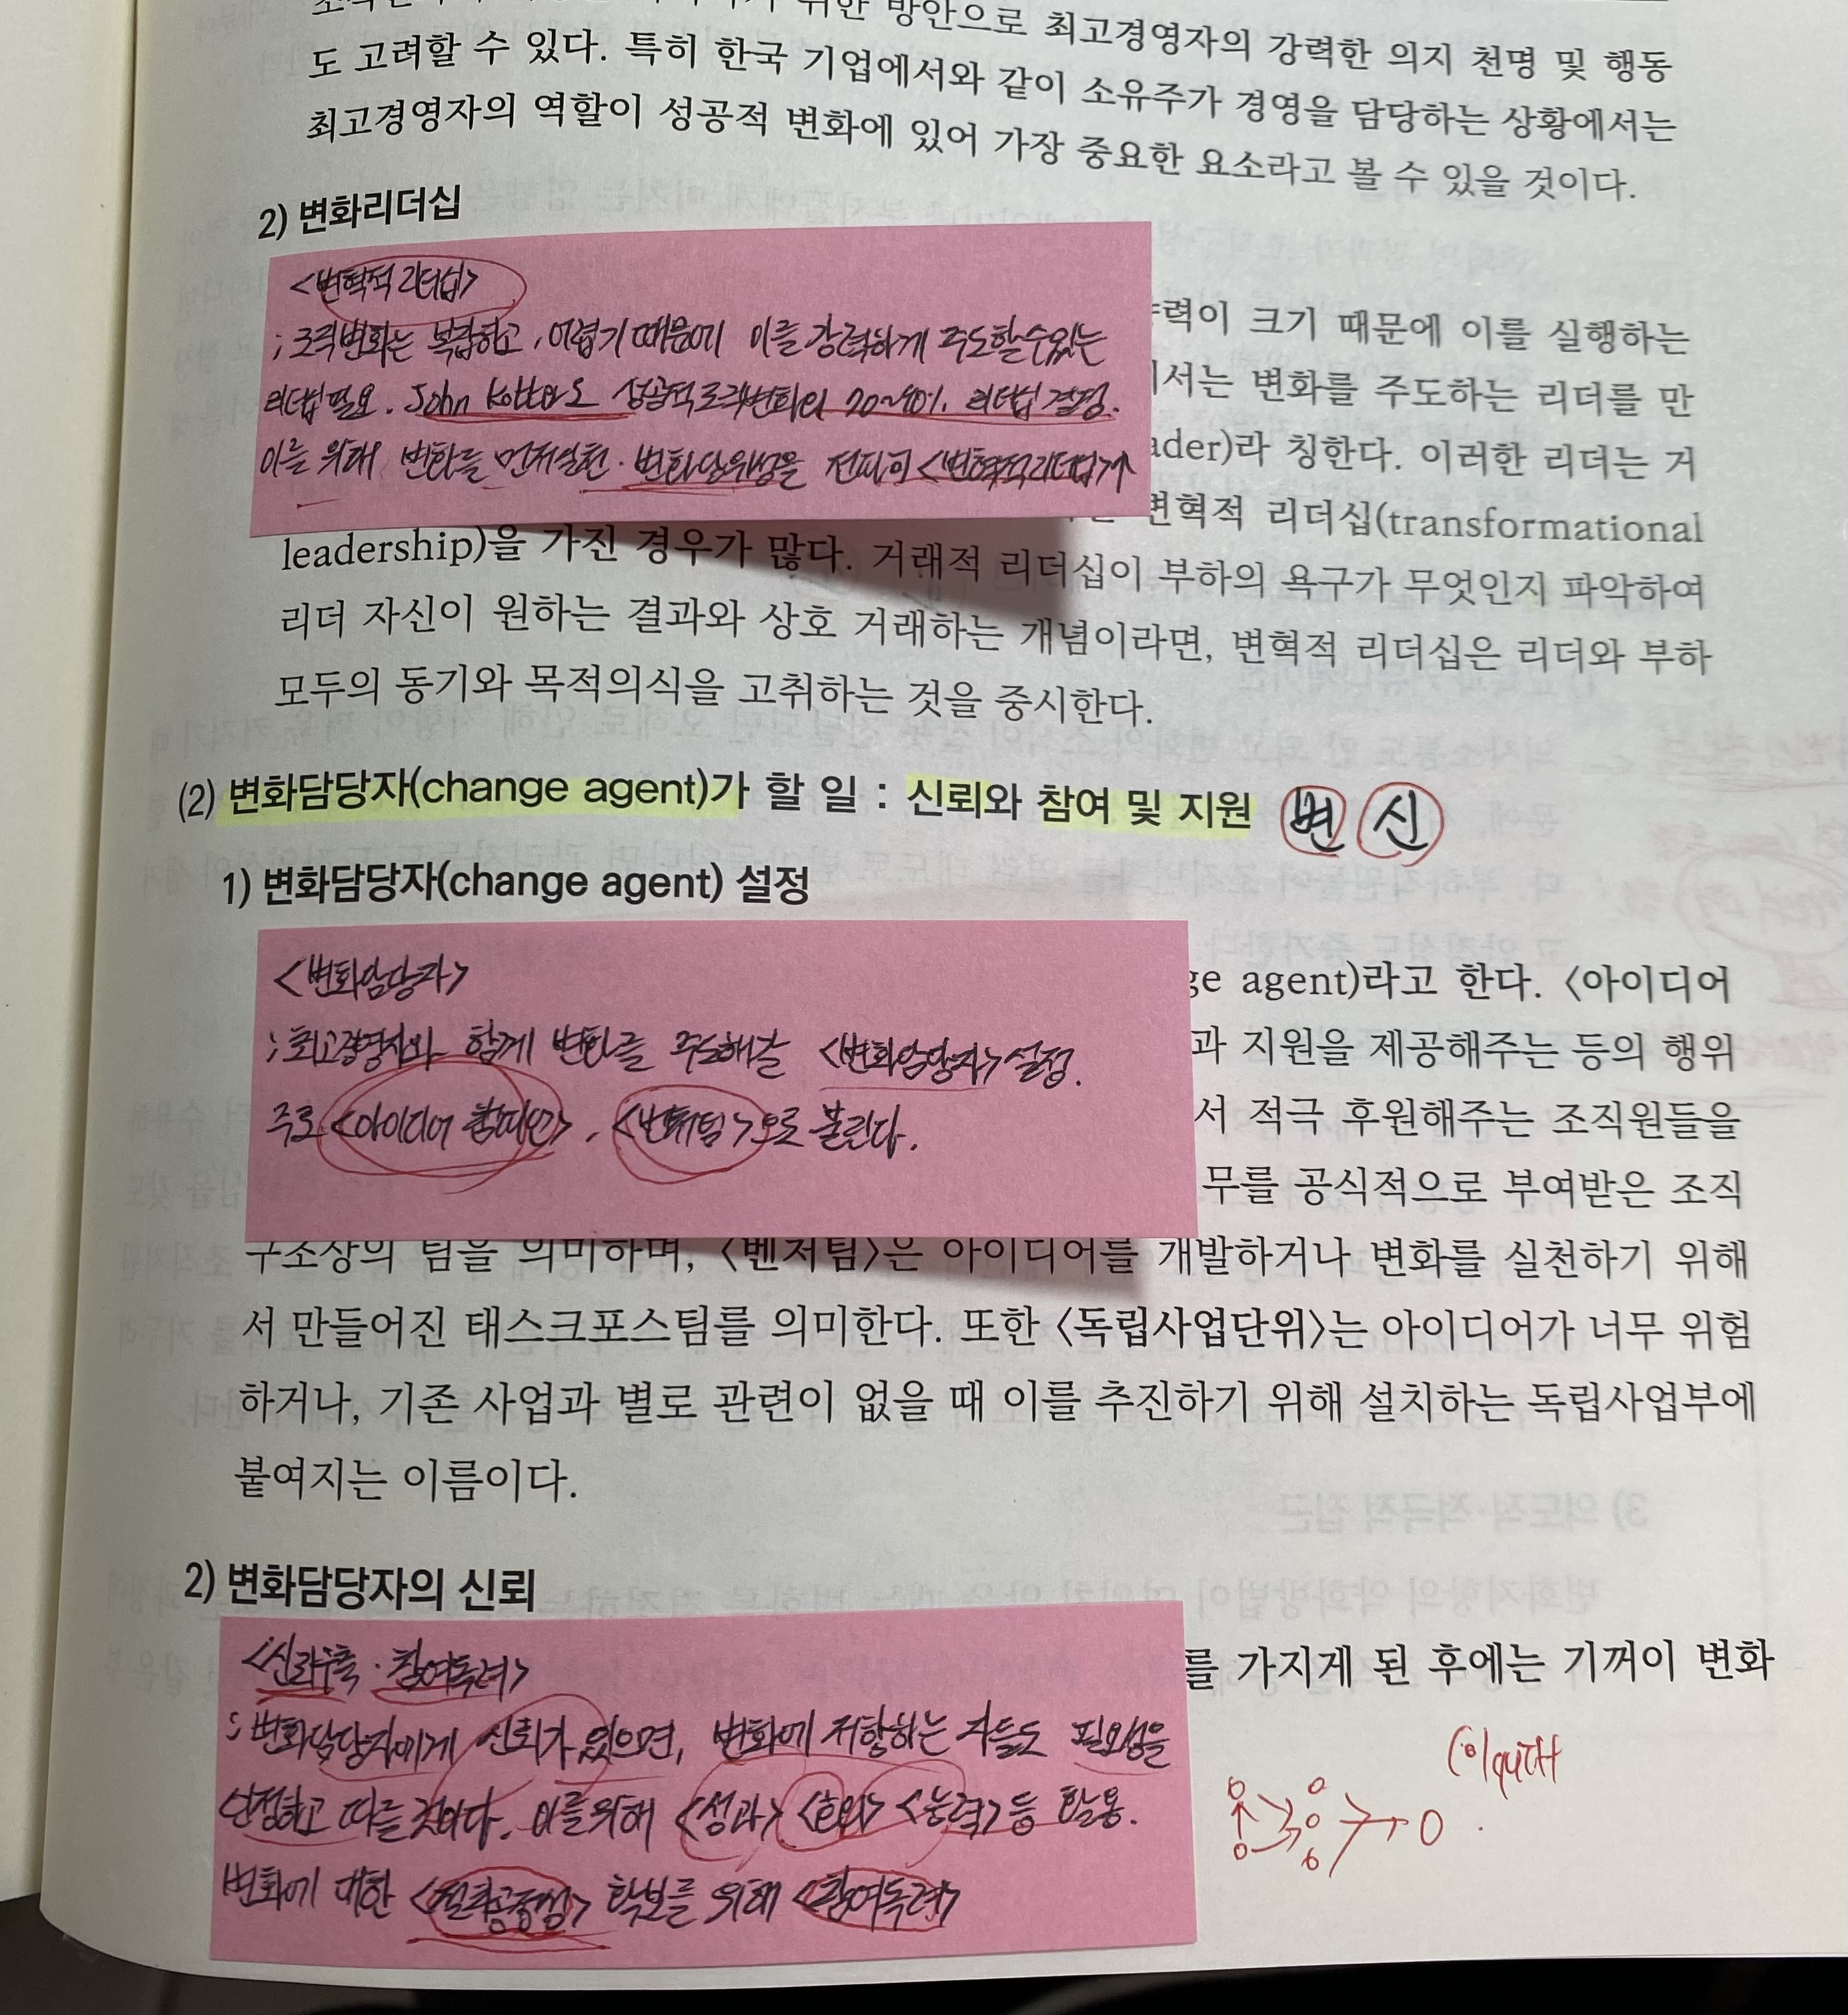 위한 방안으로 최고경영자의 강력한 의지 천명 및 행동
도 고려할 수 있다. 특히 한국 기업에서와 같이 소유주가 경영을 담당하는 상황에서는
최고경영자의 역할이 성공적 변화에 있어 가장 중요한 요소라고 볼 수 있을 것이다.
2) 변화리더십
<변혁적 리더십>
; 조직변화는 복잡하고, 어렵기 때문에 이를 강력하게 주도할 수 있는
리더십 필요. John Kotter도 성공적 조직변화의 20~40% 리더십 결정.
이를 위해 변화를 먼저 실천·변화당위성을 전파히 <변혁적리더십>가
력이 크기 때문에 이를 실행하는
서는 변화를 주도하는 리더를 만
ader)라 칭한다. 이러한 리더는 거
변혁적 리더십(transformational
leadership)을 가진 경우가 많다. 거래적 리더십이 부하의 욕구가 무엇인지 파악하여
리더 자신이 원하는 결과와 상호 거래하는 개념이라면, 변혁적 리더십은 리더와 부하
모두의 동기와 목적의식을 고취하는 것을 중시한다.
(2) 변화담당자(change agent)가 할 일 : 신뢰와 참여 및 지원 변 신
1) 변화담당자(change agent) 설정
<변화담당자>
; 최고경영자와 함께 변화를 주도해갈 <변화담당자> 설정.
주로 <아이디어 챔피언>, <벤처팀>으로 불린다.
ge agent)라고 한다. 〈아이디어
과 지원을 제공해주는 등의 행위
서 적극 후원해주는 조직원들을
무를 공식적으로 부여받은 조직
구조상의 팀을 의미하며, 〈벤처팀〉은 아이디어를 개발하거나 변화를 실천하기 위해
서 만들어진 태스크포스팀를 의미한다. 또한 〈독립사업단위〉는 아이디어가 너무 위험
하거나, 기존 사업과 별로 관련이 없을 때 이를 추진하기 위해 설치하는 독립사업부에
붙여지는 이름이다.
2) 변화담당자의 신뢰
<신뢰구축·참여독려>
; 변화담당자에게 신뢰가 있으면, 변화에 저항하는 자들도 필요성을
인정하고 따를 것이다. 이를 위해 <성과> <호의> <능력> 등 활용.
변화에 대한 <절차공정성> 확보를 위해 <참여독려>
를 가지게 된 후에는 기꺼이 변화